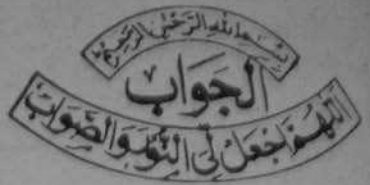 بسم الله الرحمن الرحیم
الجواب
اللهم اجعل لی النور والصواب